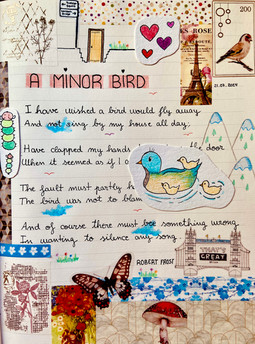 200
21.05.2024
A MINOR BIRD
I have wished a bird would fly away
And not sing by my house all day;
Have clapped my hands the door
When it seemed as if I
The fault must partly h
The bird was not to blam
And of course there must be something wrong
In wanting to silence any song.
ROBERT FROST
GREAT